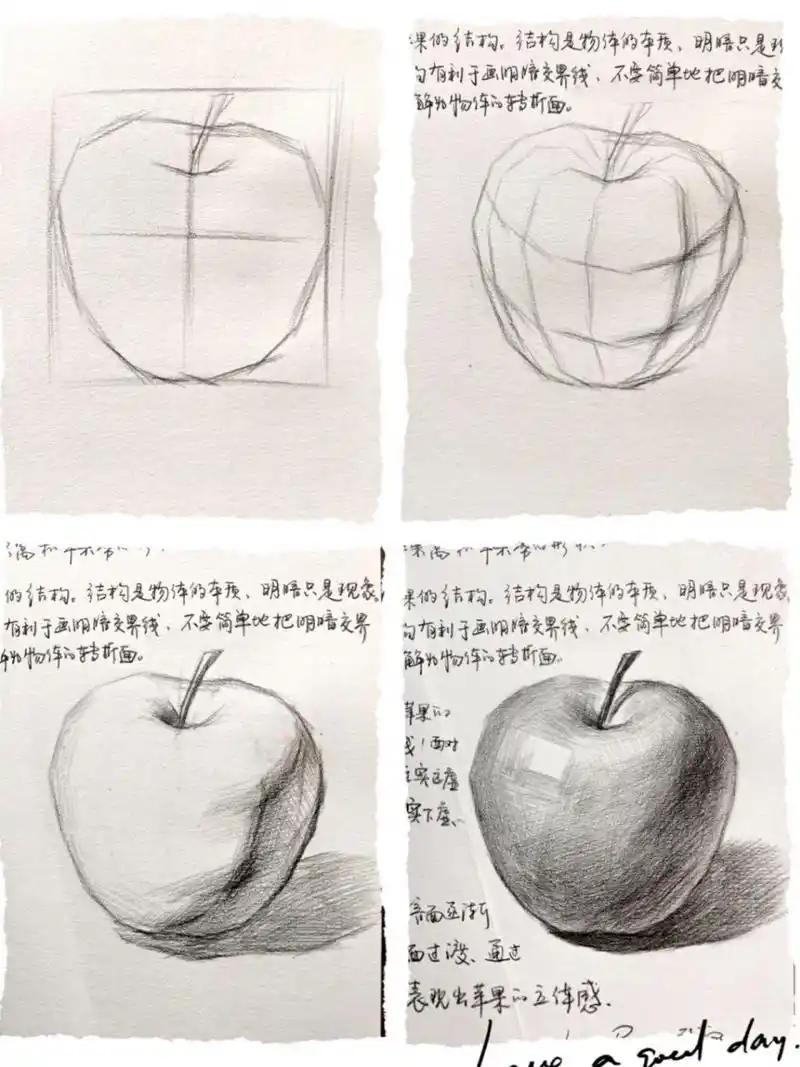 果的结构。结构是物体的本质、明暗只是现
有利于画明暗交界线、不要简单地把明暗交
解为物体的转折面。
的结构。结构是物体的本质、明暗只是现象
有利于画明暗交界线、不要简单地把明暗交界
解为物体的转折面。
果的结构。结构是物体的本质、明暗只是现象
有利于画明暗交界线、不要简单地把明暗交界
解为物体的转折面。
苹果的
面对
实下虚、
面逐渐
面过渡、通过
表现出苹果的立体感.
Have a good day.